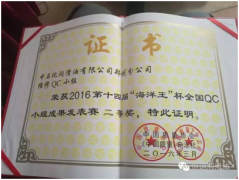 证书
中石化润滑油有限公司郑州分公司
QC小组
荣获2016第十四届“海洋王”杯全国QC
小组成果发表赛 二等奖，特此证明。
二〇一六年三月